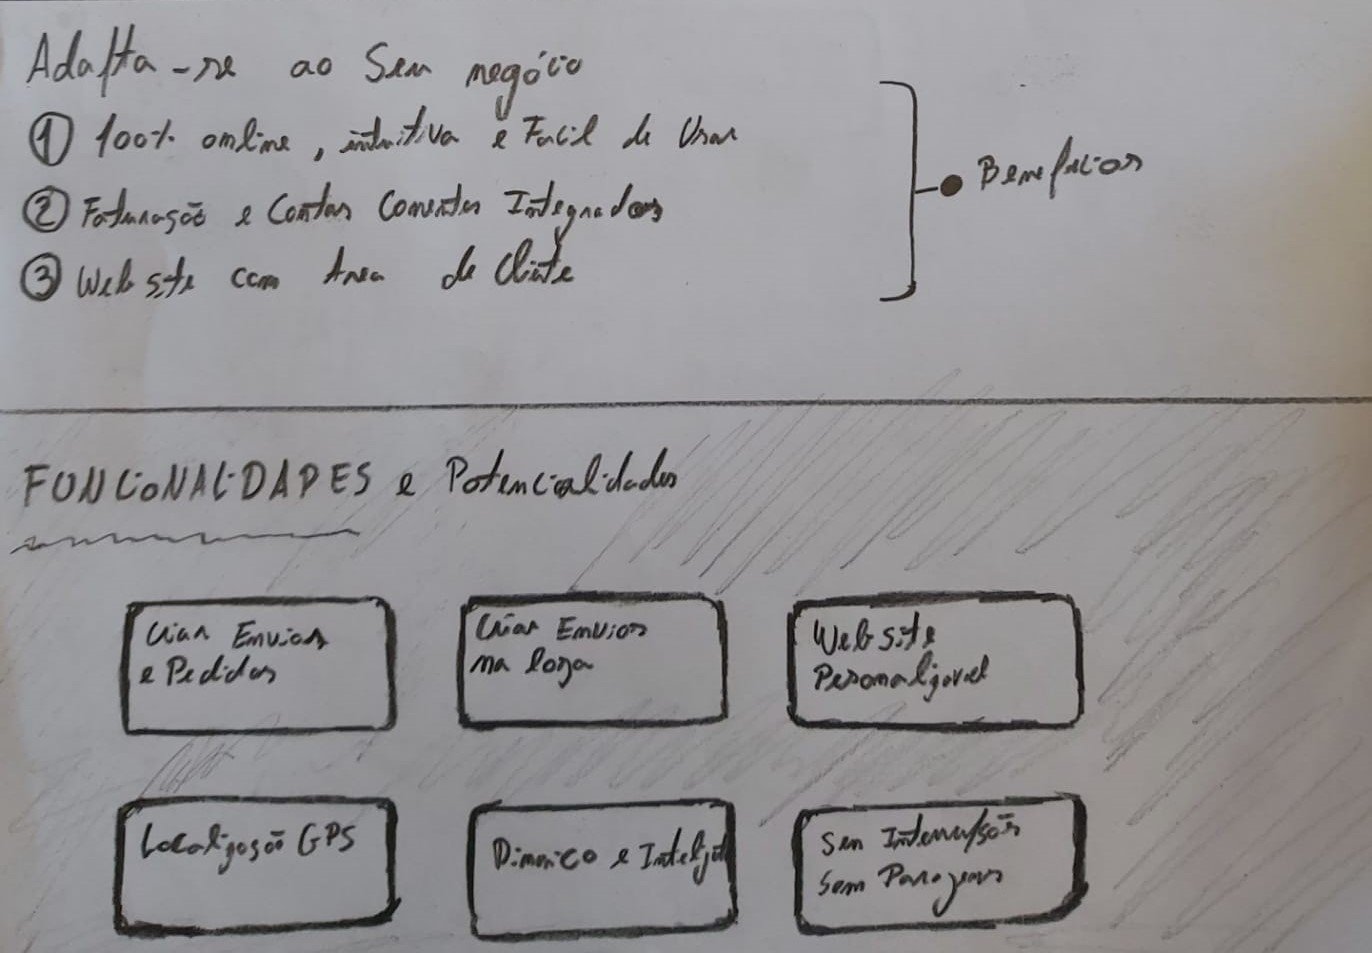 Adapta-se ao Seu negócio
① 100% online, intuitiva e Facil de Usar
② Faturação e Contas Correntes Integradas
③ Web site com Area de Cliente
Beneficios
FUNCIONALIDADES e Potencialidades
Criar Envios
e Pedidos
Criar Envios
na loja
Web site
Personalizavel
Localização GPS
Dinamico e Inteligente
Sem Interrupsões
Sem Paragens